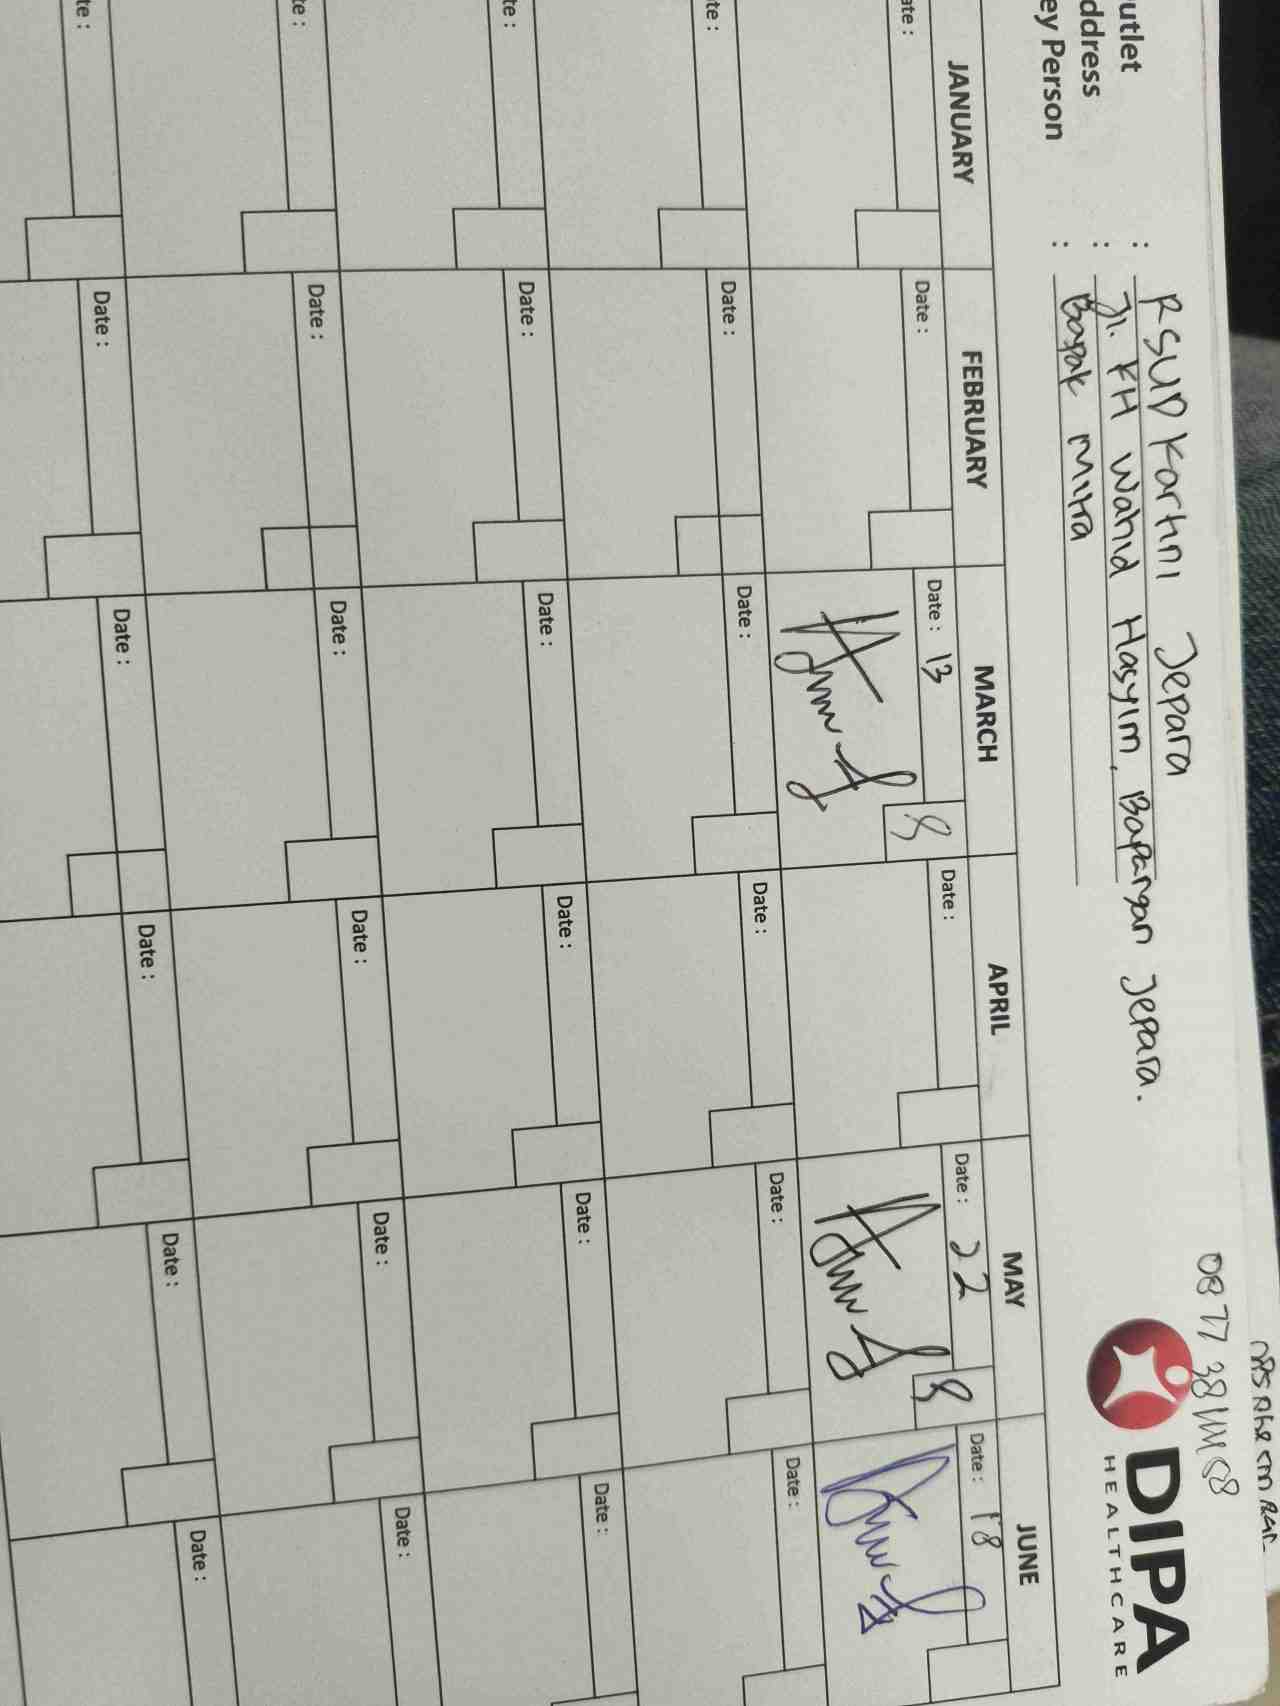 DIPA
HEALTHCARE
utlet : RSUD Kartini Jepara
ddress : Jl. KH Wahid Hasyim, Bapangan Jepara.
ey Person : Bapak Mitra
JANUARY FEBRUARY MARCH APRIL MAY JUNE
ate : Date : Date : 13 8 Date : Date : 22 8 Date : 18
te : Date : Date : Date : Date : Date :
te : Date : Date : Date : Date : Date :
te : Date : Date : Date : Date : Date :
te : Date : Date : Date : Date : Date :